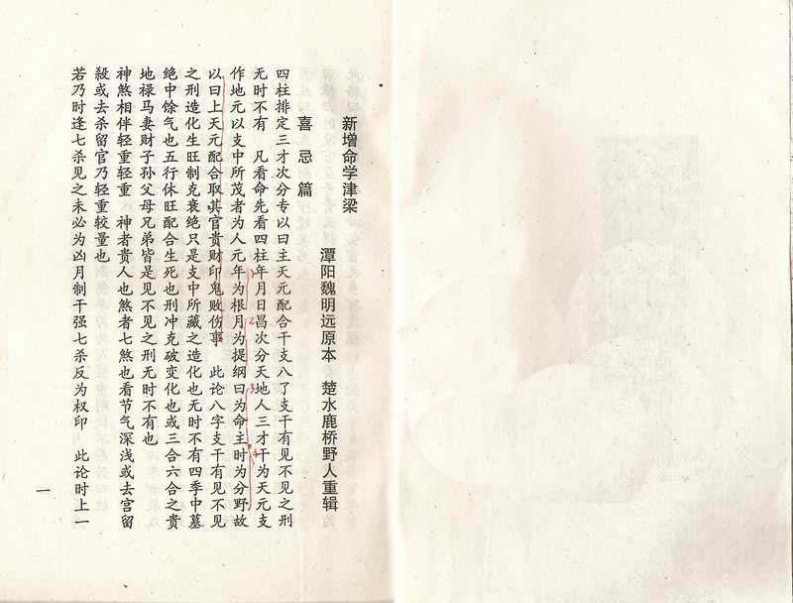 新增命学津梁
潭阳魏明远原本　楚水鹿桥野人重辑
喜忌篇
四柱排定三才次分专以日主天元配合干支八了支干有见不见之刑
无时不有　凡看命先看四柱年月日昌次分天地人三才干为天元支
作地元以支中所茂者为人元年为根月为提纲日为命主时为分野故
以日上天元配合取其官贵财印鬼败伤事　此论八字支干有见不见
之刑造化生旺制克衰绝只是支中所藏之造化也无时不有四季中墓
绝中馀气也五行休旺配合生死也刑冲克破变化也或三合六合之贵
地禄马妻财子孙父母兄弟皆是见不见之刑无时不有也
神煞相伴轻重轻重　神者贵人也煞者七煞也看节气深浅或去宫留
殺或去杀留官乃轻重较量也
若乃时逢七杀见之未必为凶月制干强七杀反为权印　此论时上一
一